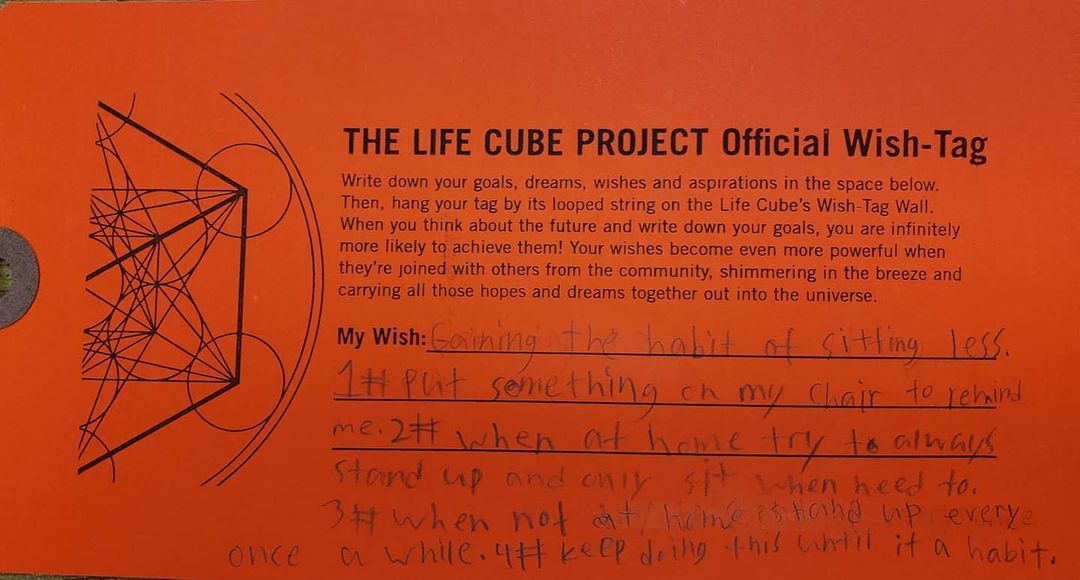 THE LIFE CUBE PROJECT Official Wish-Tag
Write down your goals, dreams, wishes and aspirations in the space below.
Then, hang your tag by its looped string on the Life Cube's Wish-Tag Wall.
When you think about the future and write down your goals, you are infinitely
more likely to achieve them! Your wishes become even more powerful when
they're joined with others from the community, shimmering in the breeze and
carrying all those hopes and dreams together out into the universe.
My Wish: Gaining the habit of sitting less.
1# put something on my chair to remind
me. 2# when at home try to always
stand up and only sit when need to.
3# when not at home stand up every
once a while. 4# keep doing this until it a habit.